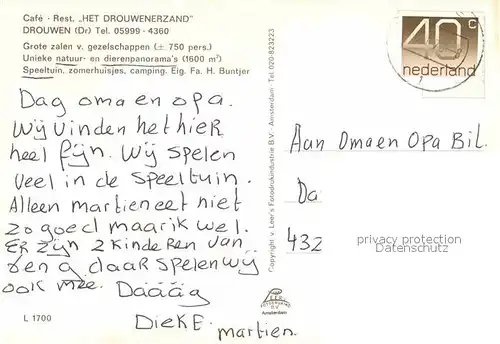 Café - Rest. „HET DROUWENERZAND"
DROUWEN (Dr) Tel. 05999 - 4360
Grote zalen v. gezelschappen (± 750 pers.)
Unieke natuur- en dierenpanorama's (1600 m²)
Speeltuin. zomerhuisjes, camping. Eig. Fa. H. Buntjer
Dag oma en opa.
Wij vinden het hier
heel fijn. Wij spelen
veel in de speeltuin.
Alleen martien eet niet
zo goed maar ik wel.
Er zijn 2 kinderen van
en daar spelen wij
ook mee. Dáááág
Dieke. martien.
L 1700
Copyright v. Leer's Fotodrukindustrie B.V. - Amsterdam - Tel. 020-823223
LEER
B.V.
Amsterdam
40 c
nederland
Aan Oma en Opa Bil.
Da
432
privacy protection
Datenschutz